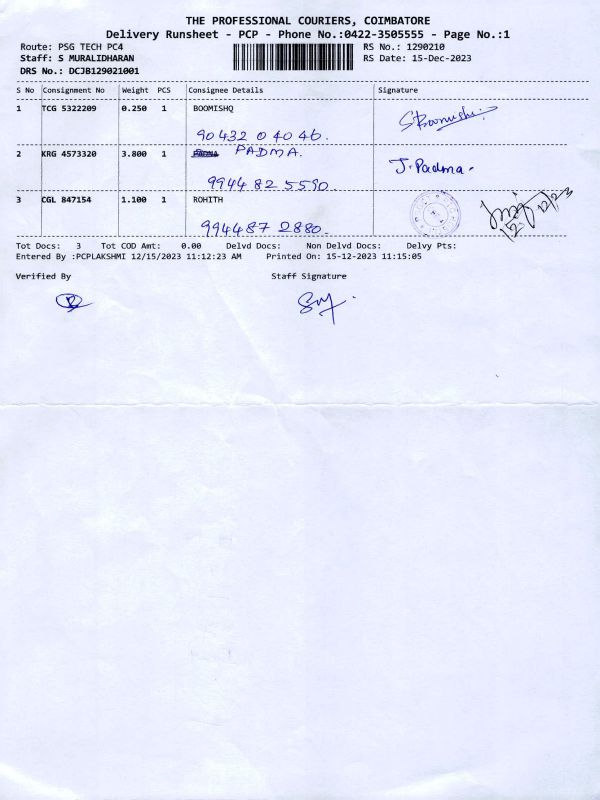 THE PROFESSIONAL COURIERS, COIMBATORE
Delivery Runsheet - PCP - Phone No.:0422-3505555 - Page No.:1
Route: PSG TECH PC4 RS No.: 1290210
Staff: S MURALIDHARAN RS Date: 15-Dec-2023
DRS No.: DCJB129021001
S No Consignment No Weight PCS Consignee Details Signature
1 TCG 5322209 0.250 1 BOOMISHQ
90432 04046.
2 KRG 4573320 3.800 1 PADMA.
J. Padma.
9944 82 5590.
3 CGL 847154 1.100 1 ROHITH
994487 2880.
Tot Docs: 3 Tot COD Amt: 0.00 Delvd Docs: Non Delvd Docs: Delvy Pts:
Entered By :PCPLAKSHMI 12/15/2023 11:12:23 AM Printed On: 15-12-2023 11:15:05
Verified By Staff Signature